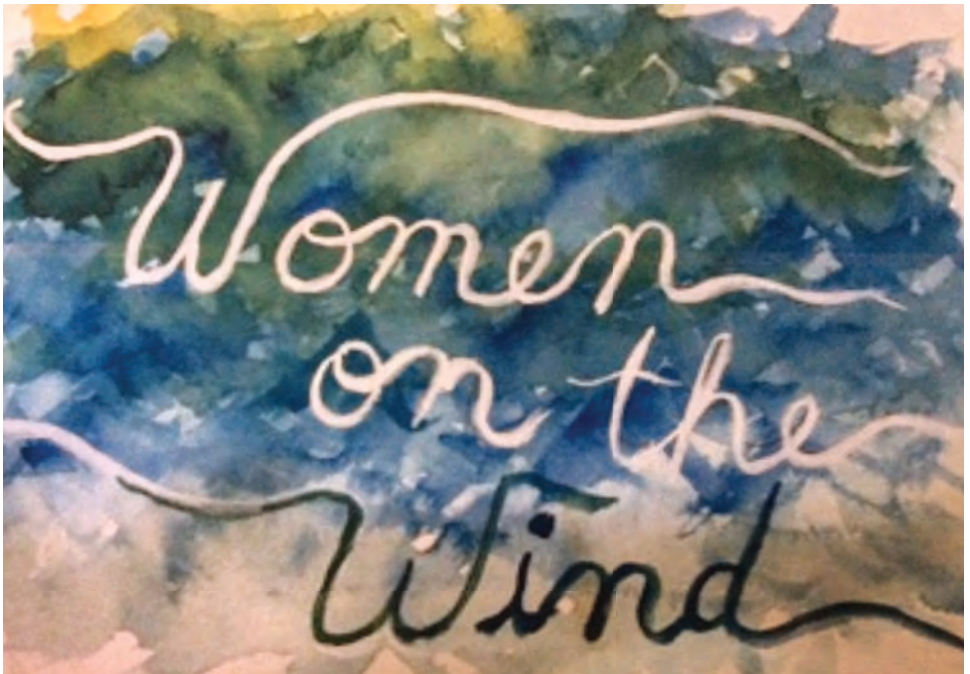 Women
on the
Wind